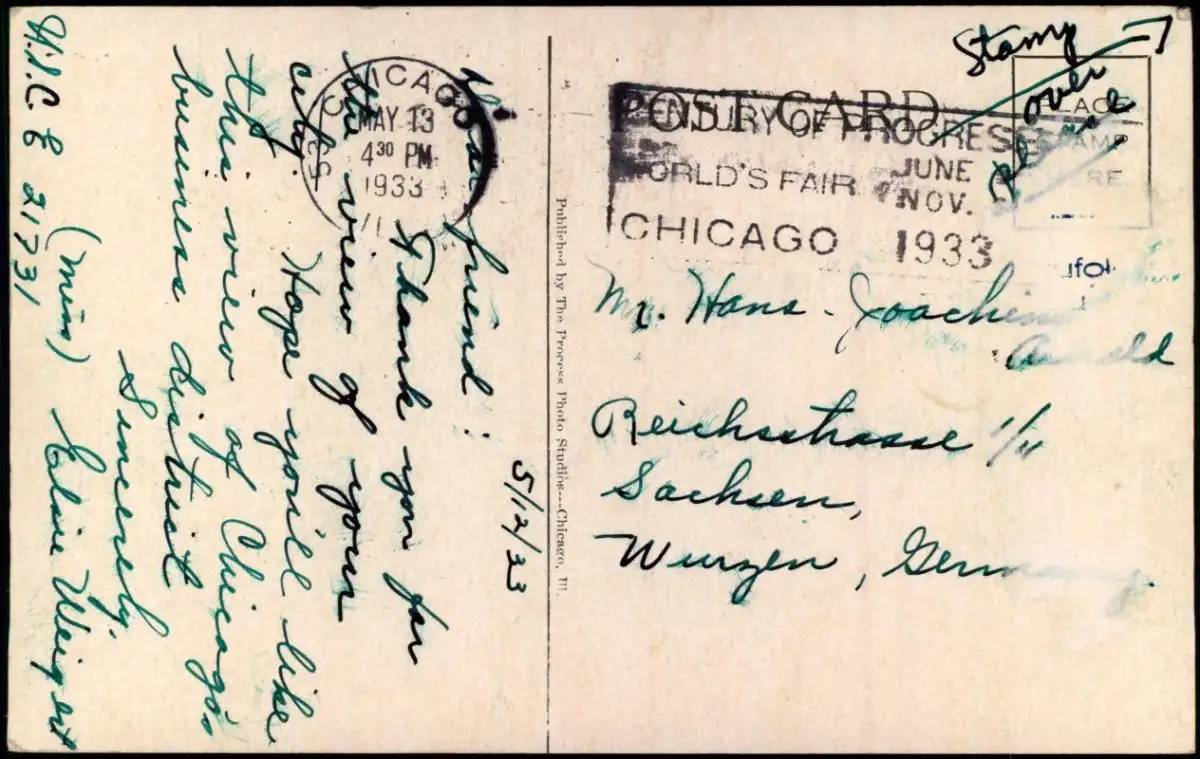 5/12/33
Dear friend:
Thank you for
the view of your
city. Hope you'll like
this view of Chicago's
business district
Sincerely,
(Miss) Elsie Weigert
21731
CHICAGO
MAY 13
4 30 PM
1933
Published by The Process Photo Studios---Chicago, Ill.
Stamp
over
POST CARD
PLACE
STAMP
HERE
A CENTURY OF PROGRESS
WORLD'S FAIR JUNE
NOV.
CHICAGO 1933
Mr. Hans-Joachim
Arnold
Reichsstrasse 1/II
Sachsen,
Wurzen, Germany.